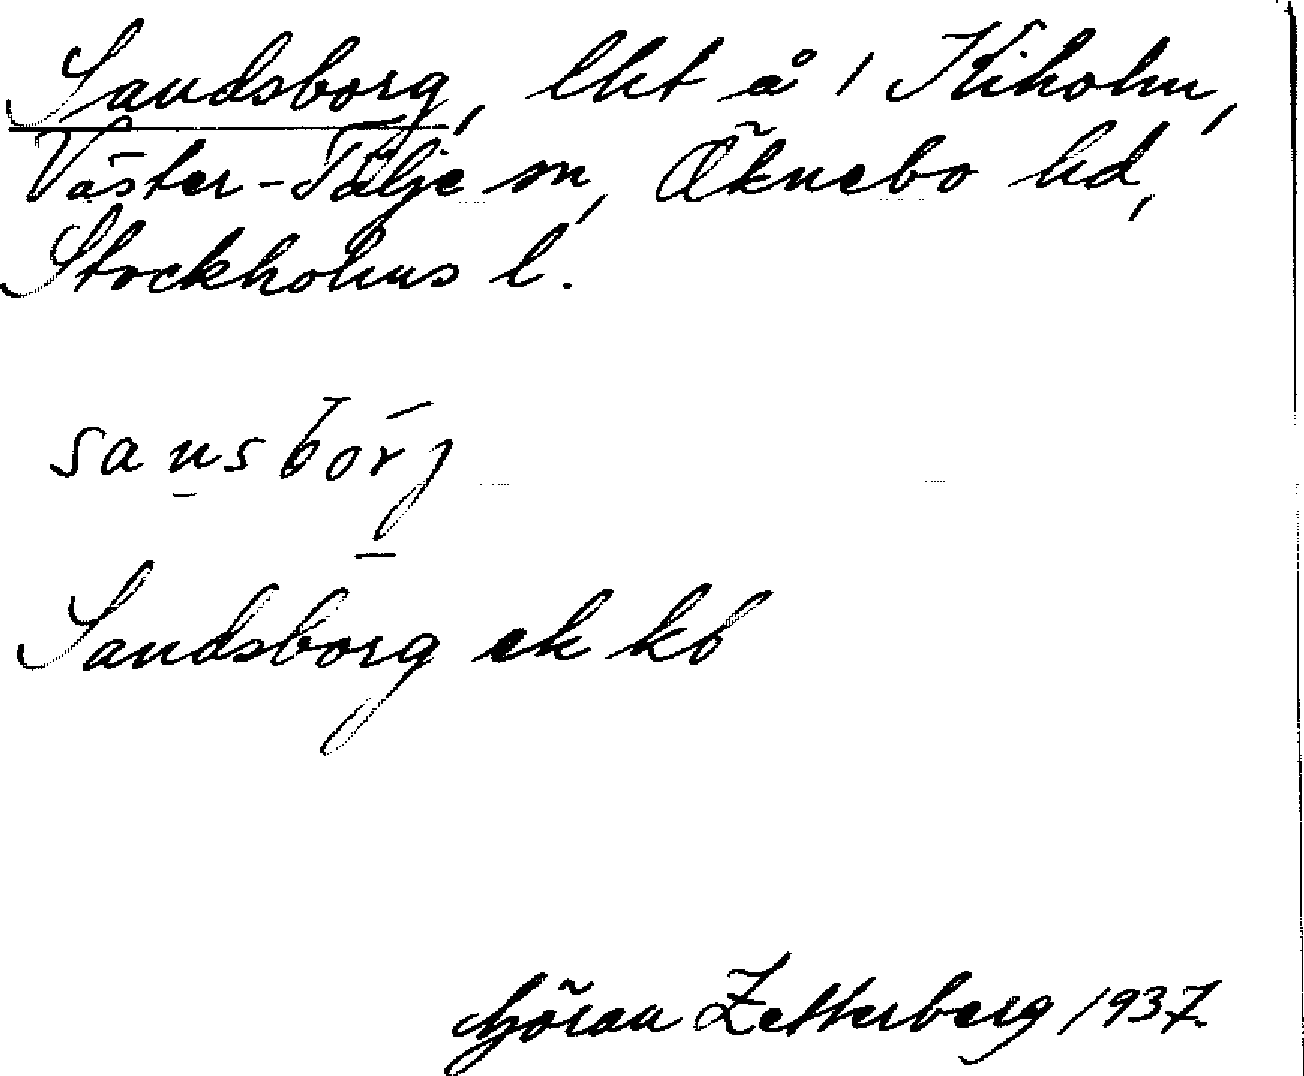 Sandsborg, lht å 1 Kiholm,
Väster-Tälje sn, Öknebo hd,
Stockholms l.
sansbórj
Sandsborg ek kb
Göran Zetterberg 1937.